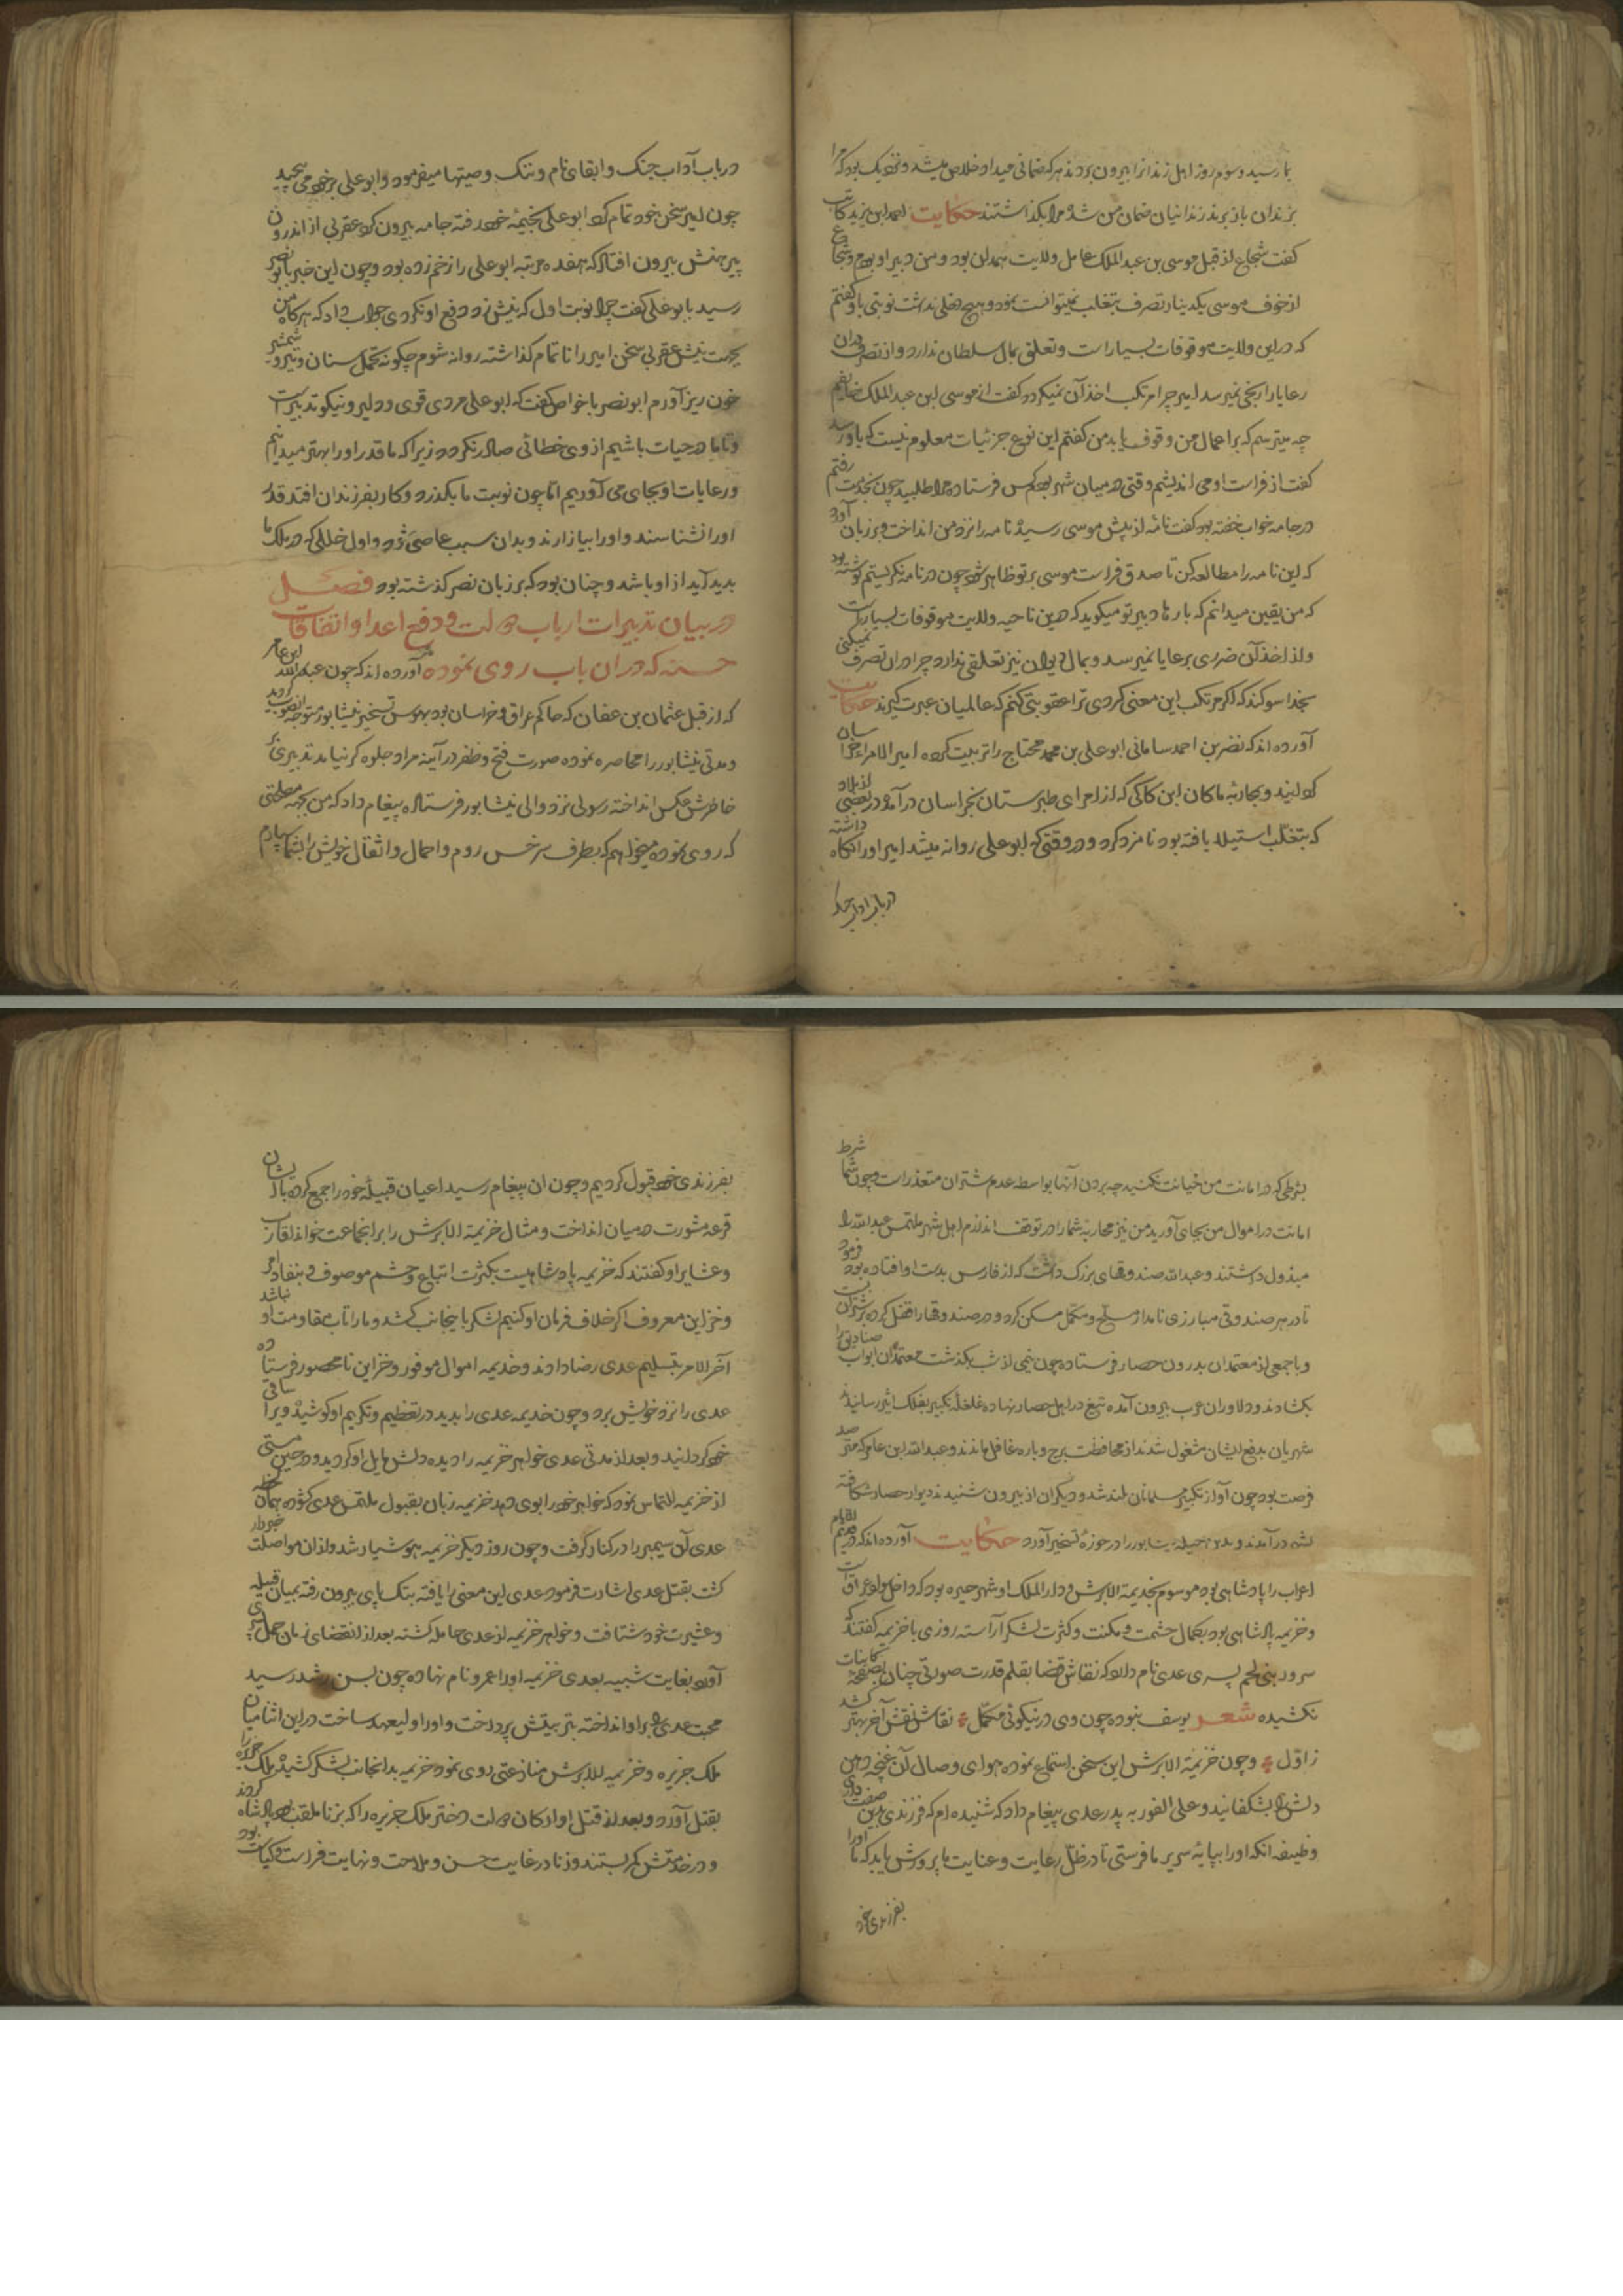 بما رسید و سوم روز اهل زندانرا بیرون بردند هر که ضمانی میداد خلاص میشد و نزدیک بود که مرا
بزندان باز برند زندانیان ضمان من شده مرا بگذاشتند حکایت احمد ابن یزید کاتب
گفت شجاع از قبل موسی بن عبد الملک عامل ولایت همدان بود و من دبیر او بودم و شجاع
از خوف موسی یکدینار تصرف بتغلب نمیتوانست نمود و هیچ دخلی نداشت نوبتی باو گفتم
که در این ولایت موقوفات بسیار است و تعلق بمال سلطان ندارد و از تصرف دران
رعایا را رنجی نمیرسد امیر چرا مرتکب اخذ آن نمیگردد گفت از موسی ابن عبد الملک خایفم
چه میترسم که بر اعمال من وقوف یابد من گفتم این نوع جزئیات معلوم نیست که باو رسد
گفت از فراست او می اندیشم وقتی در میان شهر بودم کس فرستاده مرا طلبید چون بخدمت رفتم
در جامه خواب خفته بود گفت نامه از پیش موسی رسیده نامه را نزد من انداخت و بر زبان آورد
که این نامه را مطالعه کن تا صدق فراست موسی بر تو ظاهر شود چون در نامه نگریستم نوشته بود
که من یقین میدانم که بارها دبیر تو میگوید که درین ناحیه ولایت موقوفات بسیارست
و از اخذ آن ضرری برعایا نمیرسد و بمال دیوان نیز تعلقی ندارد چرا دران تصرف نمیکنی
بخدا سوگند که اگر مرتکب این معنی گردی ترا عقوبتی کنم که عالمیان عبرت گیرند حکایت
آورده اند که نصر بن احمد سامانی ابو علی بن محمد محتاج را تربیت کرده امیر الامراء خراسان
گردانید و بمحاربه ماکان ابن کاکی که از امرای طبرستان بخراسان در آمده در بعضی از بلاد
که بتغلب استیلا یافته بود نامزد کرد و در وقتی که ابو علی روانه میشد امیر او را نگاه داشته
در باب آداب جنک
در باب آداب جنک و ابقای نام و ننک وصیتها میفرمود و ابو علی بر خود می پیچید
چون امیر سخن خود تمام کرد ابو علی بخیمه خود رفته جامه بیرون کرد عقربی از اندرون
پیرهنش بیرون افتاد که هفده مرتبه ابو علی را زخم زده بود و چون این خبر بابو نصر
رسید بابو علی گفت چرا نوبت اول که نیش زد دفع او نکردی جواب داد که هرگاه من
بجهت نیش عقربی سخن امیر را ناتمام گذاشته روانه شوم چگونه تحمل سنان و تیر و شمشیر
خون ریز آورم ابو نصر با خواص گفت که ابو علی مردی قوی و دلیر و نیکو تدبیر است
و تا ما در حیات باشیم از وی خطائی صادر نگردد زیرا که ما قدر او را بهتر میدانیم
و رعایات او بجای می آوریم اما چون نوبت ما بگذرد و کار بفرزندان افتد قدر
او را نشناسند و او را بیازارند و بدان سبب عاصی شود و اول خللی که در ملک ما
پدید آید از او باشد و چنان بود که بر زبان نصر گذشته بود فصل
در بیان تدبیرات ارباب دولت و دفع اعدا و اتفاقات
حسنه که دران باب روی نموده آورده اند که چون عبد الله ابن عامر
که از قبل عثمان بن عفان که حاکم عراق و خراسان بود بهوس تسخیر نیشابور متوجه انصوب گردید
و مدتی نیشابور را محاصره نموده صورت فتح و ظفر در آینه مراد جلوه گر نیامد تدبیری بر
خاطرش عکس انداخته رسولی نزد والی نیشابور فرستاده پیغام داد که من بجهه مصلحتی
که روی نموده میخواهم که بطرف سرخس روم و احمال و اثقال خویش را بشما سپارم
بشرطی که در امانت من خیانت نکنید چه بردن آنها بواسطه عدم شتران متعذر است و چون شما شرط
امانت در اموال من بجای آورید من نیز محاربه شما را در توقف اندازم اهل شهر ملتمس عبد الله را
مبذول داشتند و عبد الله صندوقهای بزرگ داشت که از فارس بدست او افتاده بود فرمود
تا در هر صندوقی مبارزی نامدار مسلح و مکمل مسکن کرد و در صندوقها را قفل کرده بر شتران بست
و با جمعی از معتمدان بدرون حصار فرستاده چون نیمی از شب بگذشت معتمدان ابواب صنادیق را
بگشادند و دلاوران عرب بیرون آمده تیغ در اهل حصار نهاده غلغله تکبیر بفلک اثیر رسانیدند
شهریان بدفع ایشان مشغول شدند از محافظت برج و باره غافل ماندند و عبد الله ابن عامر که مترصد
فرصت بود چون آواز تکبیر مسلمانان بلند شد و دیگران از بیرون شنیدند دیوار حصار شکافته
بشهر در آمدند و بدین حیله نیشابور را در حوزه تسخیر آورد حکایت آورده اند که در قدیم الایام
اعراب را پادشاهی بود موسوم بخذیمة الابرش و دار الملک او شهر حیره بود که داخل ولایت عراق است
و خزیمه پادشاهی بود بکمال حشمت و مکنت و کثرت لشکر آراسته روزی با خزیمه گفتند که
سرور بنی لخم پسری عدی نام دارد که نقاش قضا بقلم قدرت صورتی چنان بر صفحه کاینات
نکشیده شعر یوسف نبوده چون وی در نیکوئی مکمل نقاش نقش آخر بهتر کشد
ز اول و چون خزیمة الابرش این سخن استماع نموده هوای وصال آن غنچه دهن
دلش را بشکفانید و علی الفور به پدر عدی پیغام داد که شنیده ام که فرزندی بدین صفت داری
وظیفه آنکه او را بپایه سریر ما فرستی تا در ظل رعایت و عنایت ما پرورش یابد که ما او را
بفرزندی خود
بفرزندی خود قبول کردیم و چون ان پیغام رسید اعیان قبیله خود را جمع کرده با ایشان
قرعه مشورت در میان انداخت و مثال خزیمة الابرش را بر انجماعت خواند اقارب
و عشایر او گفتند که خزیمه پادشاهیست بکثرت اتباع و حشم موصوف و بنفاذ امر
و خزاین معروف اگر خلاف فرمان او کنیم لشکر باینجانب کشد و ما را تاب مقاومت او نباشد
آخر الامر بتسلیم عدی رضا دادند و خذیمه اموال موفور و خزاین نامحصور فرستاده
عدی را نزد خویش برد و چون خذیمه عدی را بدید در تعظیم و تکریم او کوشید و ویرا ساقی
خود گردانید و بعد از مدتی عدی خواهر خزیمه را دیده دلش مایل او گردید و در حین مستی
از خزیمه التماس نمود که خواهر خود را بوی دهد خزیمه زبان بقبول ملتمس عدی گشوده همان لحظه
عدی آن سیمبر را در کنار گرفت و چون روز دیگر خزیمه هوشیار شد و از ان مواصلت خبردار
گشت بقتل عدی اشارت فرمود عدی این معنی را یافته بتک پای بیرون رفته بمیان قبیله
و عشیرت خود شتافت و خواهر خزیمه از عدی حامله گشته بعد از انقضای زمان حمل پسری
آورد بغایت شبیه بعدی خزیمه او را عمرو نام نهاده چون بسن رشد رسید
محبت عدی را بر او انداخته بتربیتش پرداخت و او را ولیعهد ساخت در این اثنا میان
ملک جزیره و خزیمه الابرش منازعتی روی نمود خزیمه بدانجانب لشکر کشیده ملک جزیره را
بقتل آورد و بعد از قتل او ارکان دولت دختر ملک جزیره را که بزنا ملقب بود پادشاه کردند
و در خدمتش کمر بستند و زنا در غایت حسن و ملاحت و نهایت فراست و کیاست بود